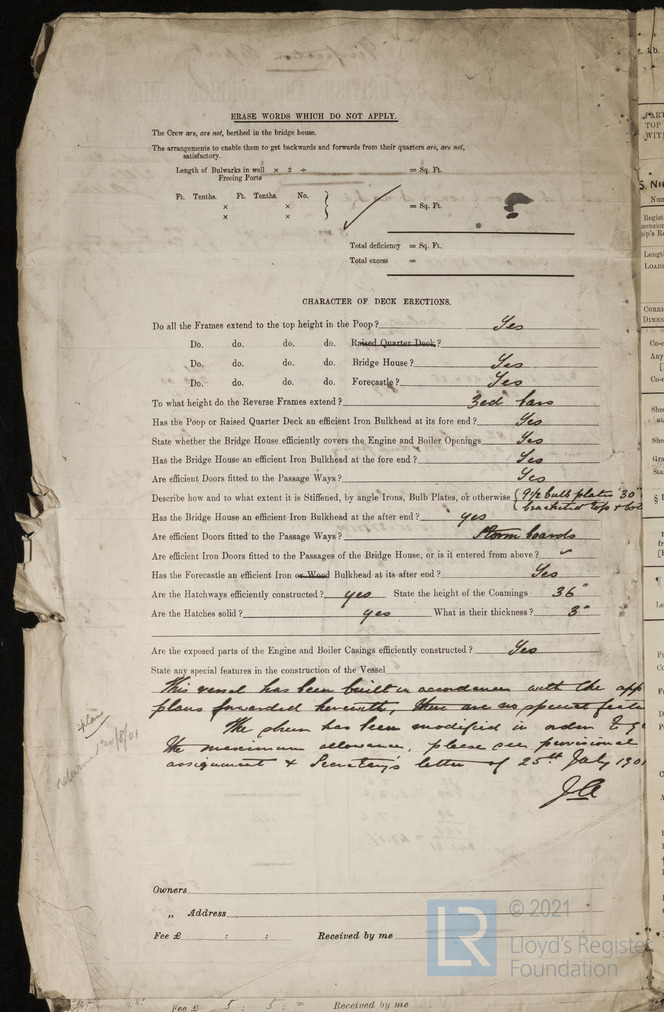 ERASE WORDS WHICH DO NOT APPLY.
The Crew are, are not, berthed in the bridge house.
The arrangements to enable them to get backwards and forwards from their quarters are, are not,
satisfactory.
Length of Bulwarks in well × 2 ÷ = Sq. Ft.
Freeing Ports
Ft. Tenths. Ft. Tenths. No.
× × } = Sq. Ft.
× ×
Total deficiency = Sq. Ft.
Total excess =
CHARACTER OF DECK ERECTIONS.
Do all the Frames extend to the top height in the Poop? Yes
Do. do. do. do. Raised Quarter Deck?
Do. do. do. do. Bridge House? Yes
Do. do. do. do. Forecastle? Yes
To what height do the Reverse Frames extend? Zed bars
Has the Poop or Raised Quarter Deck an efficient Iron Bulkhead at its fore end? Yes
State whether the Bridge House efficiently covers the Engine and Boiler Openings Yes
Has the Bridge House an efficient Iron Bulkhead at the fore end? Yes
Are efficient Doors fitted to the Passage Ways? Yes
Describe how and to what extent it is Stiffened, by angle Irons, Bulb Plates, or otherwise { 9½ bulb plates 30"
bracketed top & bot
Has the Bridge House an efficient Iron Bulkhead at the after end? yes
Are efficient Doors fitted to the Passage Ways? Storm boards
Are efficient Iron Doors fitted to the Passages of the Bridge House, or is it entered from above? ✓
Has the Forecastle an efficient Iron or Wood Bulkhead at its after end? Yes
Are the Hatchways efficiently constructed? yes State the height of the Coamings 36"
Are the Hatches solid? yes What is their thickness? 3"
Are the exposed parts of the Engine and Boiler Casings efficiently constructed? Yes
State any special features in the construction of the Vessel
This vessel has been built in accordance with the app
plans forwarded herewith, there are no special featu
The sheer has been modified in order to g
the maximum allowance, please see provisional
assignment & Secretary's letter of 25th July 1901
JA
plans
returned 30/8/01
Owners
„ Address
Fee £ : : Received by me
Fee £ 5 : 5 : = Received by me
LR © 2021
Lloyd's Register
Foundation